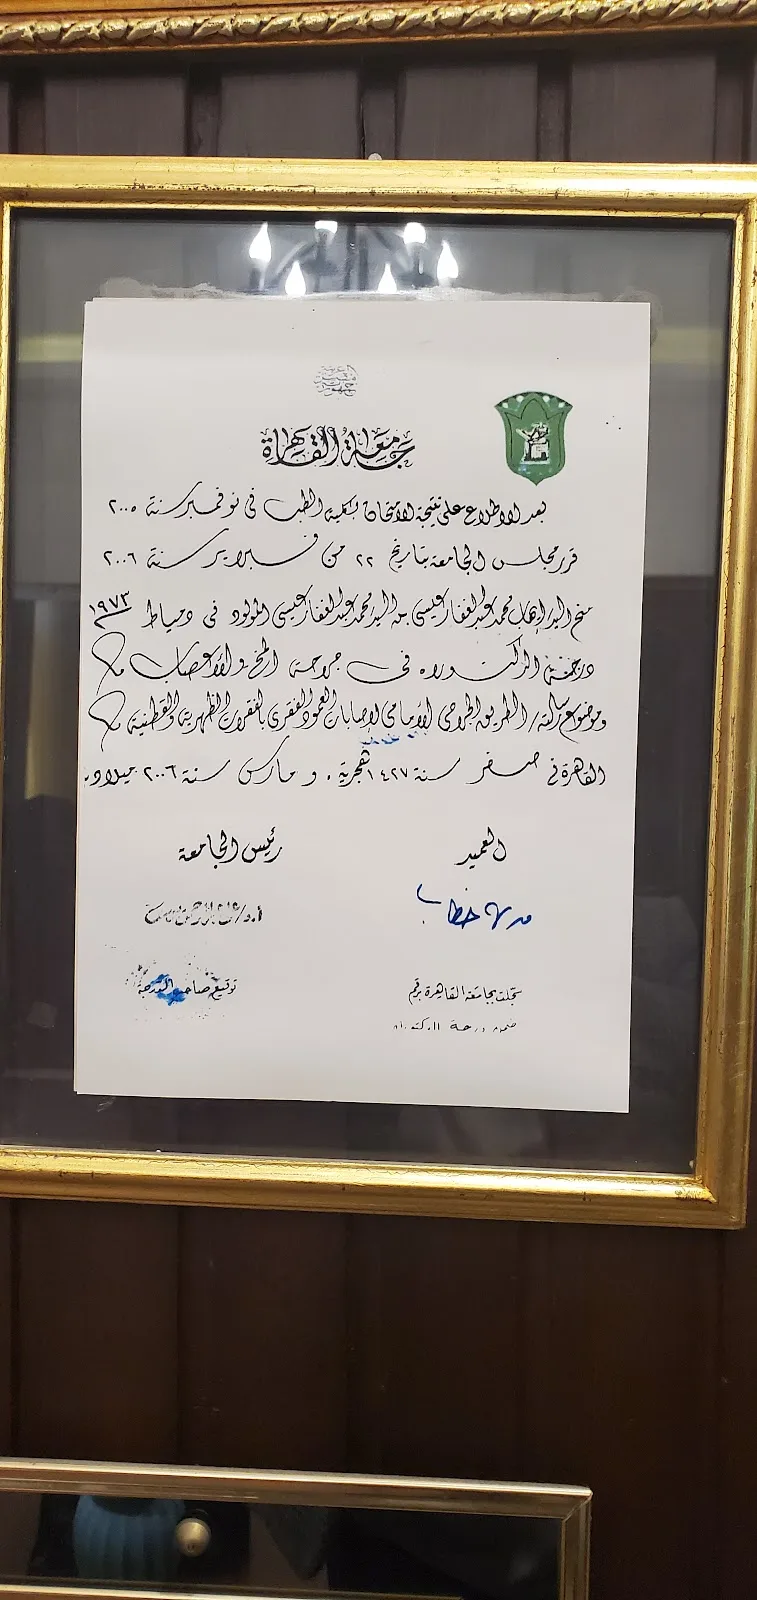 جمهورية مصر العربية
جامعة القاهرة
بعد الاطلاع على نتيجة الامتحان بكلية الطب في نوفمبر سنة ٢٠٠٥
قرر مجلس الجامعة بتاريخ ٢٢ من فبراير سنة ٢٠٠٦
منح السيد إيهاب محمد عبد الغفار عيسى بن السيد محمد عبد الغفار عيسى المولود في دمياط ١٩٧٣
درجة الدكتوراه في جراحة المخ والأعصاب
وموضوع رسالته / الطريق الجراحي الأمامي لإصابات العمود الفقري بالفقرات الظهرية والقطنية
القاهرة في صفر سنة ١٤٢٧ هجرية، و مارس سنة ٢٠٠٦ ميلادية
العميد
رئيس الجامعة
أ.د/
خطاب
سجلت بجامعة القاهرة برقم
توقيع صاحب الدرجة
ضمن درجة الدكتوراه